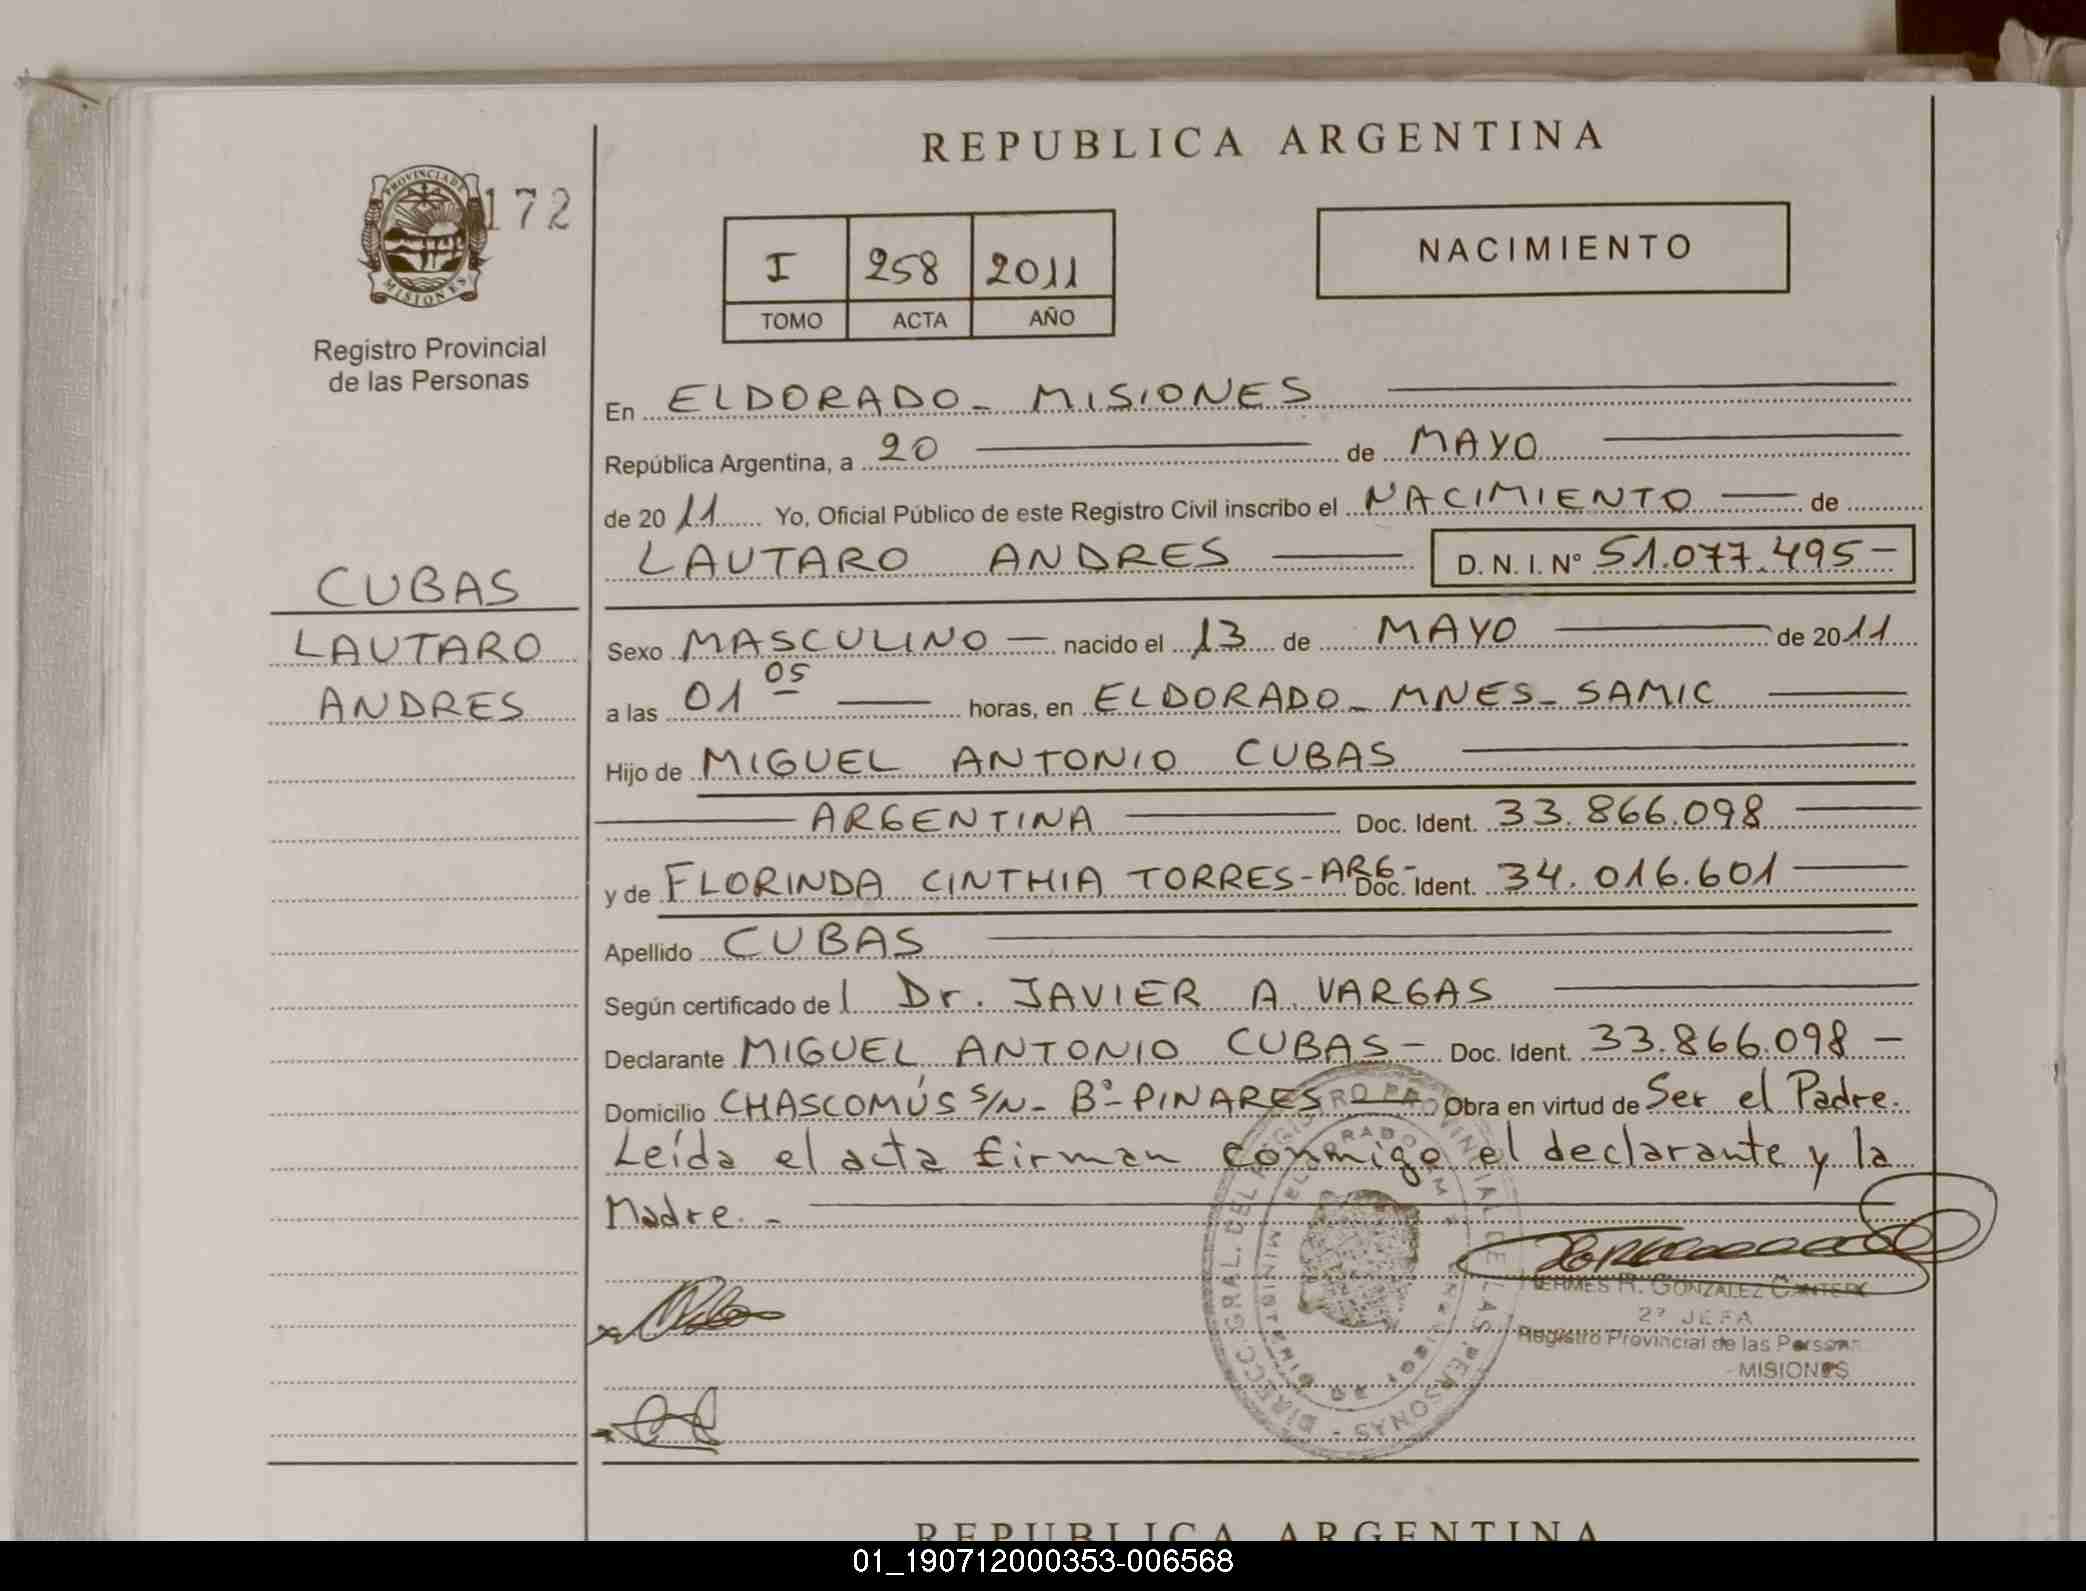 REPUBLICA ARGENTINA
PROVINCIA DE
MISIONES
172
I 258 2011
TOMO ACTA AÑO
NACIMIENTO
Registro Provincial
de las Personas
En ELDORADO - MISIONES
República Argentina, a 20 de MAYO
de 2011 Yo, Oficial Público de este Registro Civil inscribo el NACIMIENTO de
LAUTARO ANDRES D. N. I. N° 51.077.495-
CUBAS
LAUTARO
ANDRES
Sexo MASCULINO nacido el 13 de MAYO de 2011
a las 01 05 horas, en ELDORADO - MNES - SAMIC
Hijo de MIGUEL ANTONIO CUBAS
ARGENTINA Doc. Ident. 33.866.098
y de FLORINDA CINTHIA TORRES - ARG - Doc. Ident. 34.016.601
Apellido CUBAS
Según certificado del Dr. JAVIER A. VARGAS
Declarante MIGUEL ANTONIO CUBAS - Doc. Ident. 33.866.098 -
Domicilio CHASCOMÚS S/N - B° PINARES Obra en virtud de Ser el Padre.
Leída el acta firman conmigo el declarante y la
Madre. -
DIRECC. GRAL. DEL REGISTRO PROVINCIAL DE LAS PERSONAS -
HERMES R. GONZALEZ CANTERO
2° JEFA
Registro Provincial de las Personas
- MISIONES
REPUBLICA ARGENTINA
01_190712000353-006568